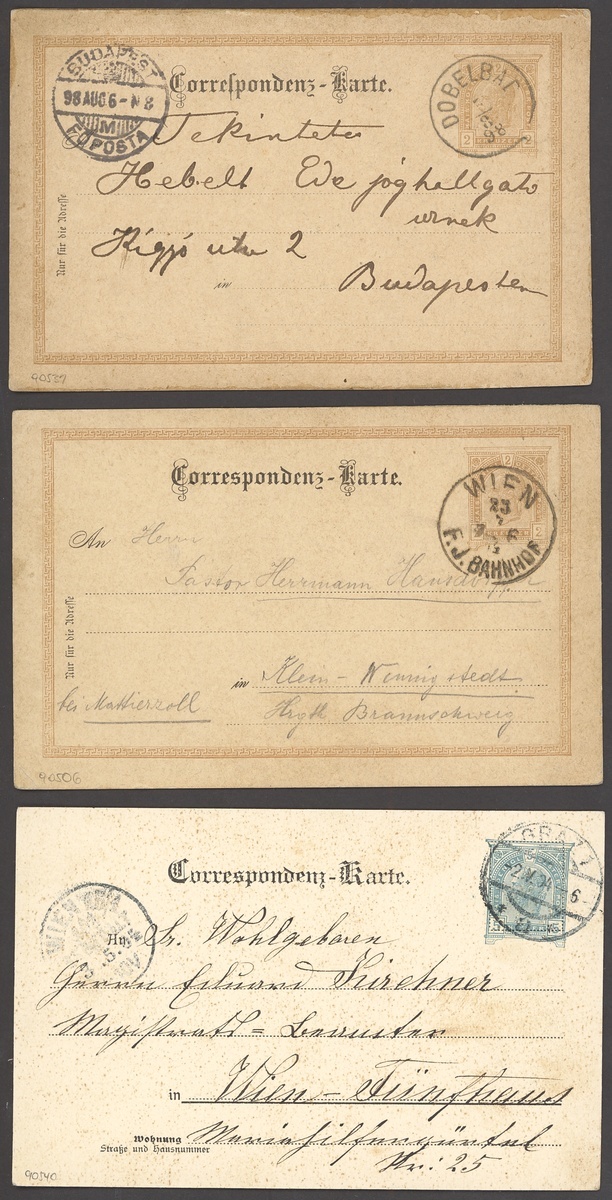 BUDAPEST
98 AUG 6 - N 8
M
FŐPOSTA
Correspondenz-Karte.
DOBELBAD
2 2
Tekintetes
Hebelt Ede joghallgató
urnak
Nur für die Adresse
Kigyó utca 2
in Budapesten
90537
Correspondenz-Karte.
2
WIEN
23
F.J. BAHNHOF
2
An Herrn
Pastor Herrmann Hansdorff
Nur für die Adresse
in Klein-Winnigstedt
bei Mattierzoll
Hrgth. Braunschweig
90506
Correspondenz-Karte.
GRAZ 1
2.V.04
6-
WIEN
An Sr. Wohlgeboren
Herrn Eduard Kirchner
Magistrats-Beamter
in Wien-Fünfhaus
Wohnung Mariahilfergürtel
Straße und Hausnummer
Nr: 25
90540